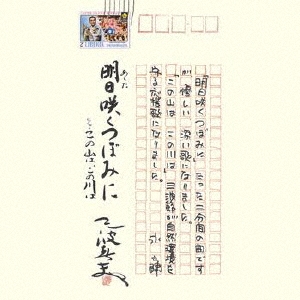 明日咲くつぼみに
あした
この山は この川は
三波春夫
「明日咲くつぼみに」たった二分間の曲です
が優しい 深い歌になりました。
「この山は この川は」三波節が自然環境を
守る応援歌になりました。
永六輔